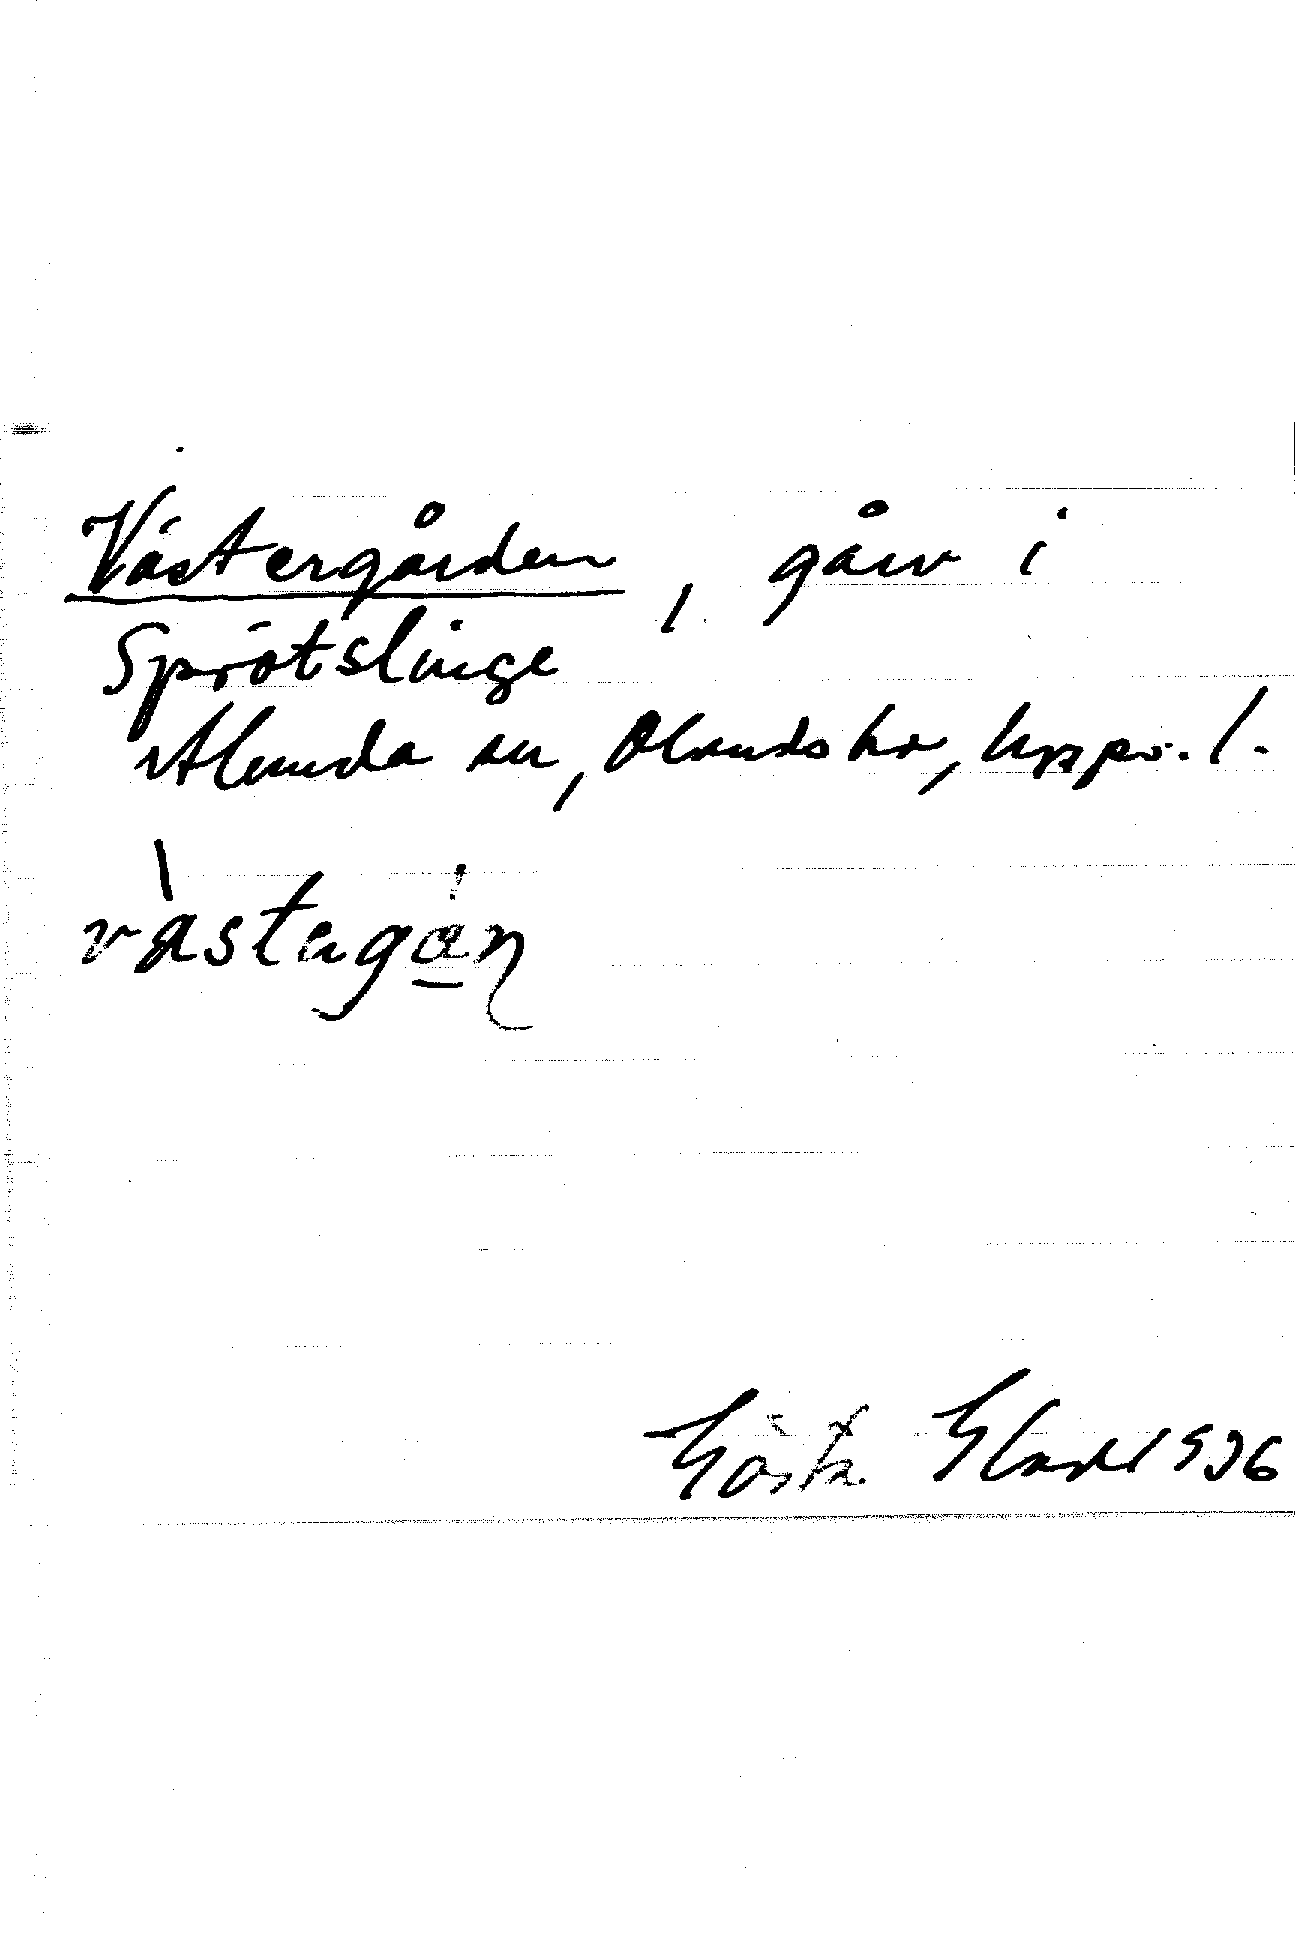 Västergården, gård i
Sprötslinge
Alunda sn, Olands hd, Upps. l.
västagán
Gösta Elad 1936